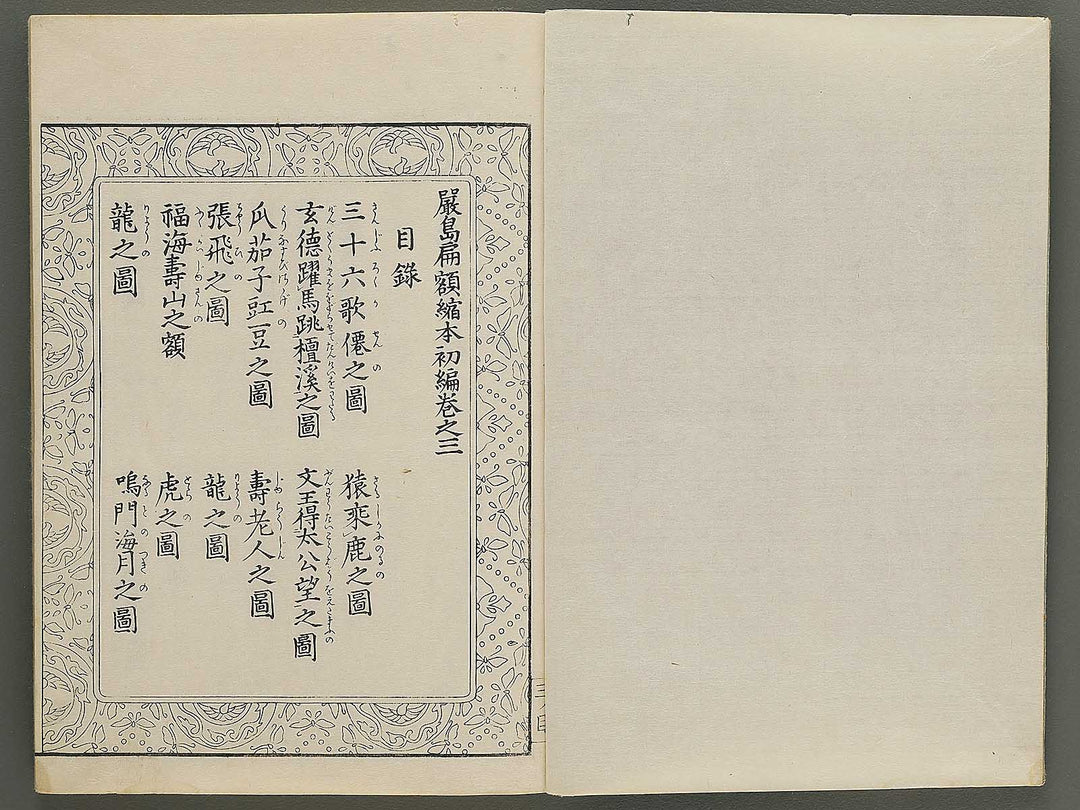 嚴島扁額縮本初編卷之三
目錄
三十六歌僊之圖
猿乘鹿之圖
玄德躍馬跳檀溪之圖
文王得太公望之圖
瓜茄子豇豆之圖
壽老人之圖
張飛之圖
龍之圖
福海壽山之額
虎之圖
龍之圖
鳴門海月之圖